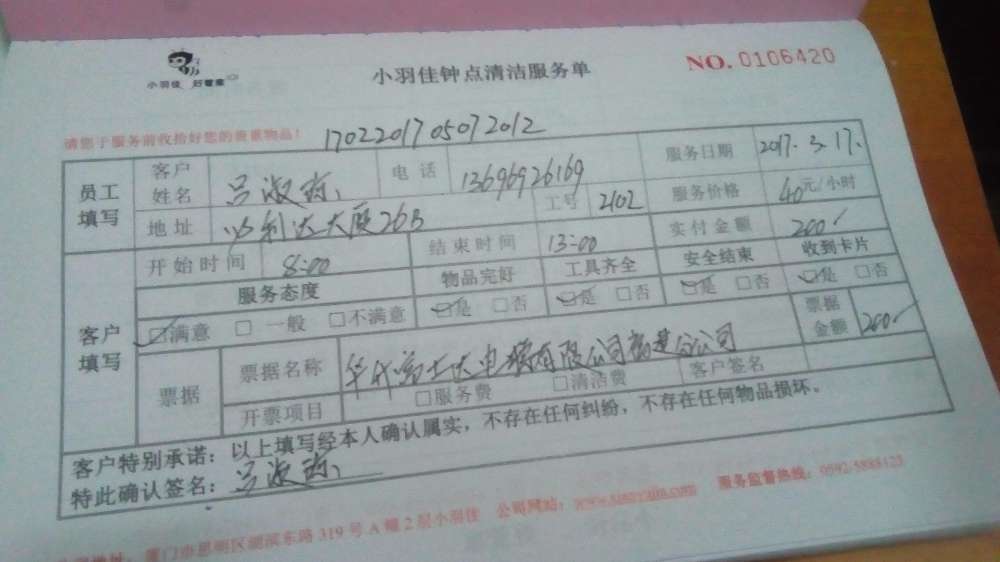 小羽佳 好管家
小羽佳钟点清洁服务单
NO. 0106420
请您于服务前收拾好您的贵重物品！
1702201705072012
员工填写 客户姓名 吕淑 电话 13696926169 服务日期 2017.3.17.
地址 利达大厦26B 工号 2102 服务价格 40元/小时
客户填写 开始时间 8:00 结束时间 13:00 实付金额 200
服务态度 物品完好 工具齐全 安全结束 收到卡片
☑满意 □一般 □不满意 ☑是 □否 ☑是 □否 ☑是 □否 ☑是 □否
票据 票据名称 士达电梯有限公司福建分公司 票据金额 200
开票项目 □服务费 □清洁费 客户签名
客户特别承诺：以上填写经本人确认属实，不存在任何纠纷，不存在任何物品损坏。
特此确认签名：吕淑
厦门市思明区湖滨东路319号A幢2层小羽佳 公司网站： 服务监督热线：0592-5888123